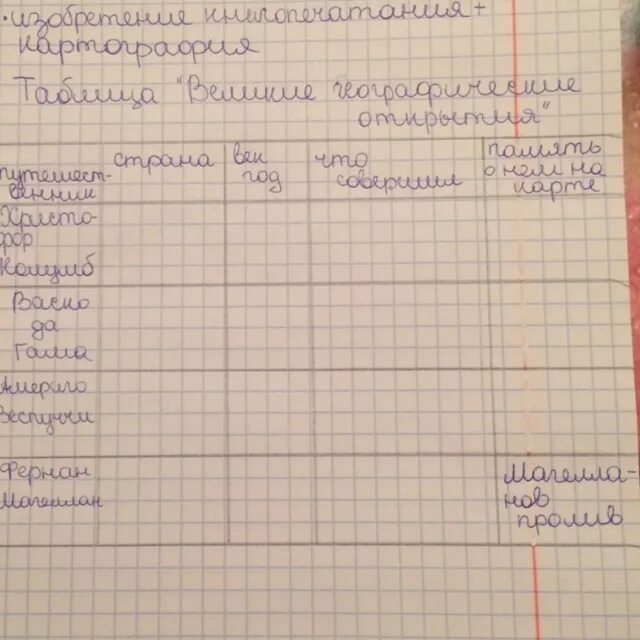 · изобретения книгопечатания +
картография
Таблица "Великие географические
открытия"
путешест-
венник
страна
век
год
что
совершил
память
о нем на
карте
Христо-
фор
Колумб
Васко
да
Гама
Америго
Веспуччи
Фернан
Магеллан
Магелла-
нов
пролив